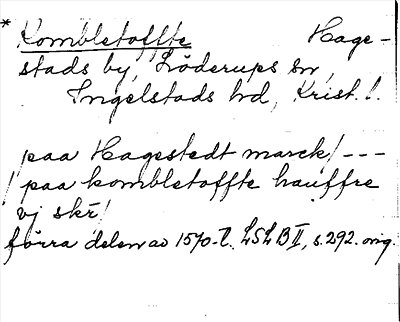 * Kombletoffte Hage-
stads by, Löderups sn,
Ingelstads hd, Krist. l.
/paa Hagestedt marck/ ---
/paa kombletoffte hauffre
vj skr/
förra delen av 1570-t. LSLB II, s. 292. orig.